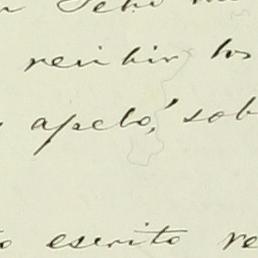 recibir los
apeló, sob
escrito re